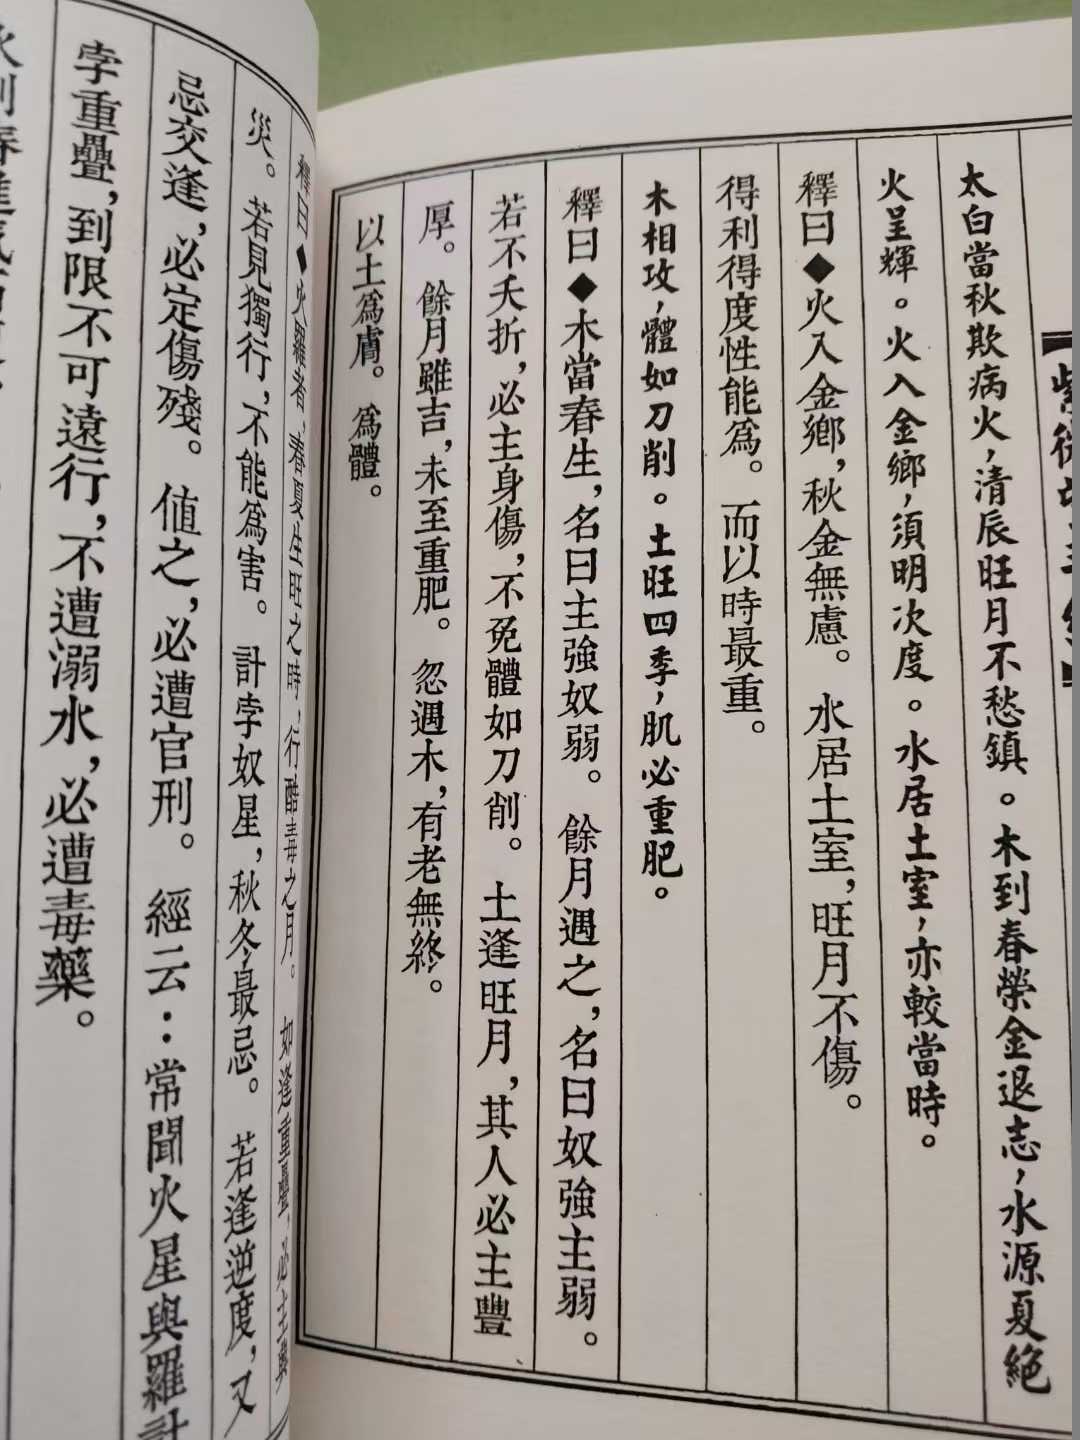 太白當秋欺病火，清辰旺月不愁鎮。木到春榮金退志，水源夏絕
火呈輝。火入金鄉，須明次度。水居土室，亦較當時。
釋曰◆火入金鄉，秋金無慮。水居土室，旺月不傷。
得利得度性能為。而以時最重。
木相攻，體如刀削。土旺四季，肌必重肥。
釋曰◆木當春生，名曰主強奴弱。餘月遇之，名曰奴強主弱。
若不夭折，必主身傷，不免體如刀削。土逢旺月，其人必主豐
厚。餘月雖吉，未至重肥。忽遇木，有老無終。
以土為膚。為體。
釋曰◆火羅者，春夏生旺之時，行酷毒之月。如逢重疊，必主興
災。若見獨行，不能為害。計孛奴星，秋冬最忌。若逢逆度，又
忌交逢，必定傷殘。值之，必遭官刑。經云：常聞火星與羅計
孛重疊，到限不可遠行，不遭溺水，必遭毒藥。